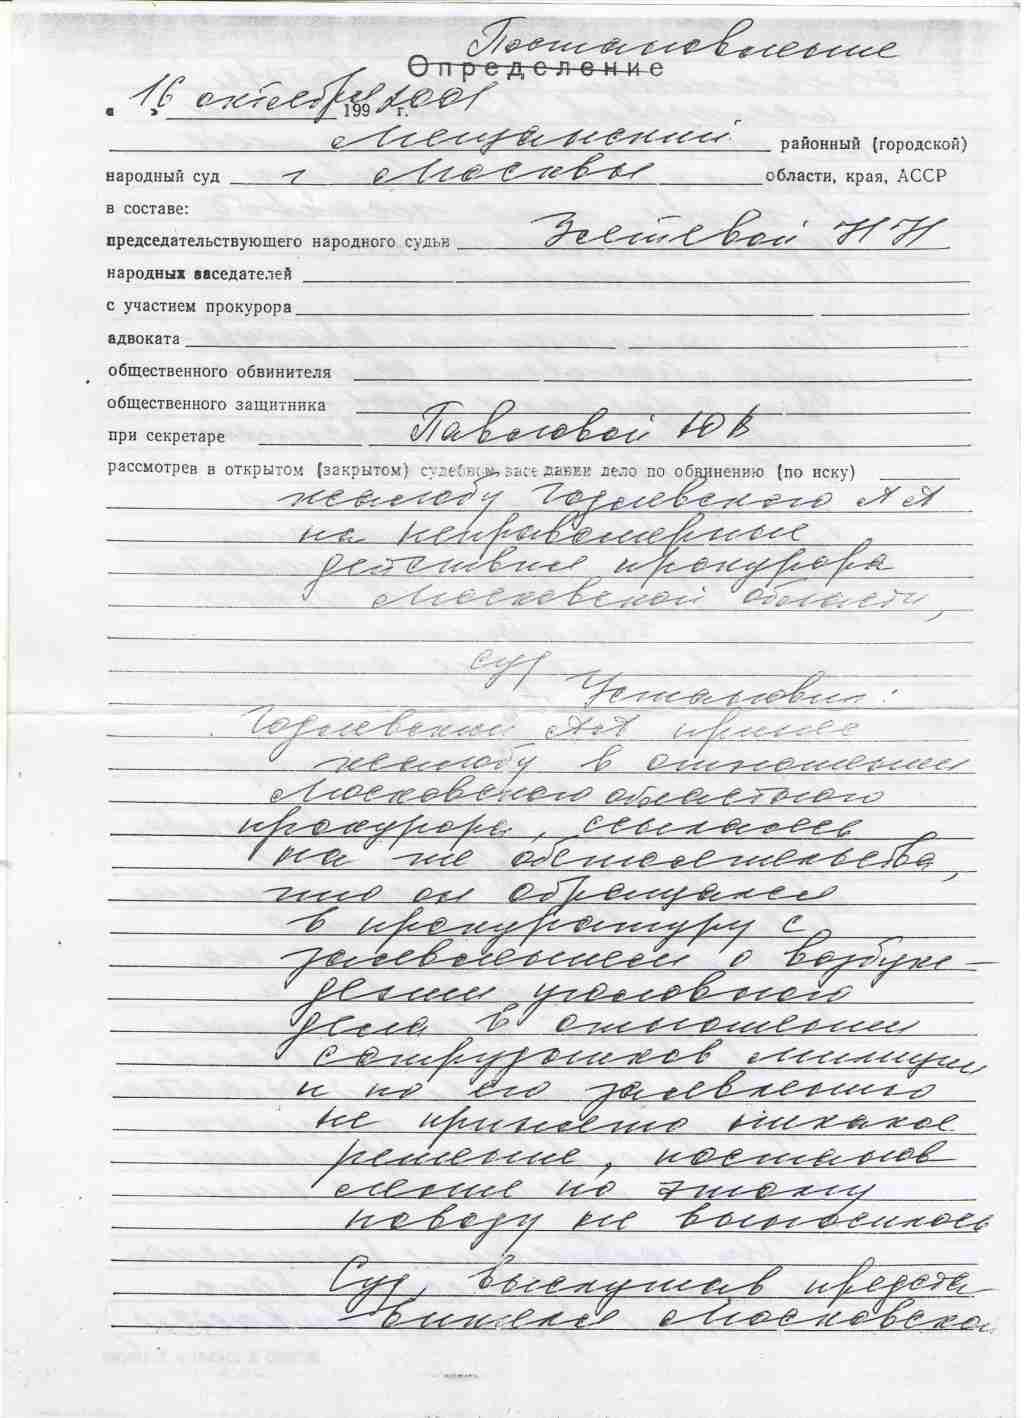 Постановление
Определение
" 16 " октября 199 2001 г.
Мещанский районный (городской)
народный суд г Москвы области, края, АССР
в составе:
председательствующего народного судьи Н Н
народных заседателей
с участием прокурора
адвоката
общественного обвинителя
общественного защитника
при секретаре Павловой Ю В
рассмотрев в открытом (закрытом) судебном заседании дело по обвинению (по иску)
жалобу Годлевского А А
на неправомерные
действия прокурора
Московской области,
суд
Установил:
Годлевский А А принес
жалобу в отношении
Московского областного
прокурора, ссылаясь
на те обстоятельства,
что он обращался
в прокуратуру с
заявлением о возбуж-
дении уголовного
дела в отношении
сотрудников милиции
и по его заявлению
не принято никакое
решение, постанов
ление по этому
поводу не выносилось
Суд, выслушав предста-
вителя Московской